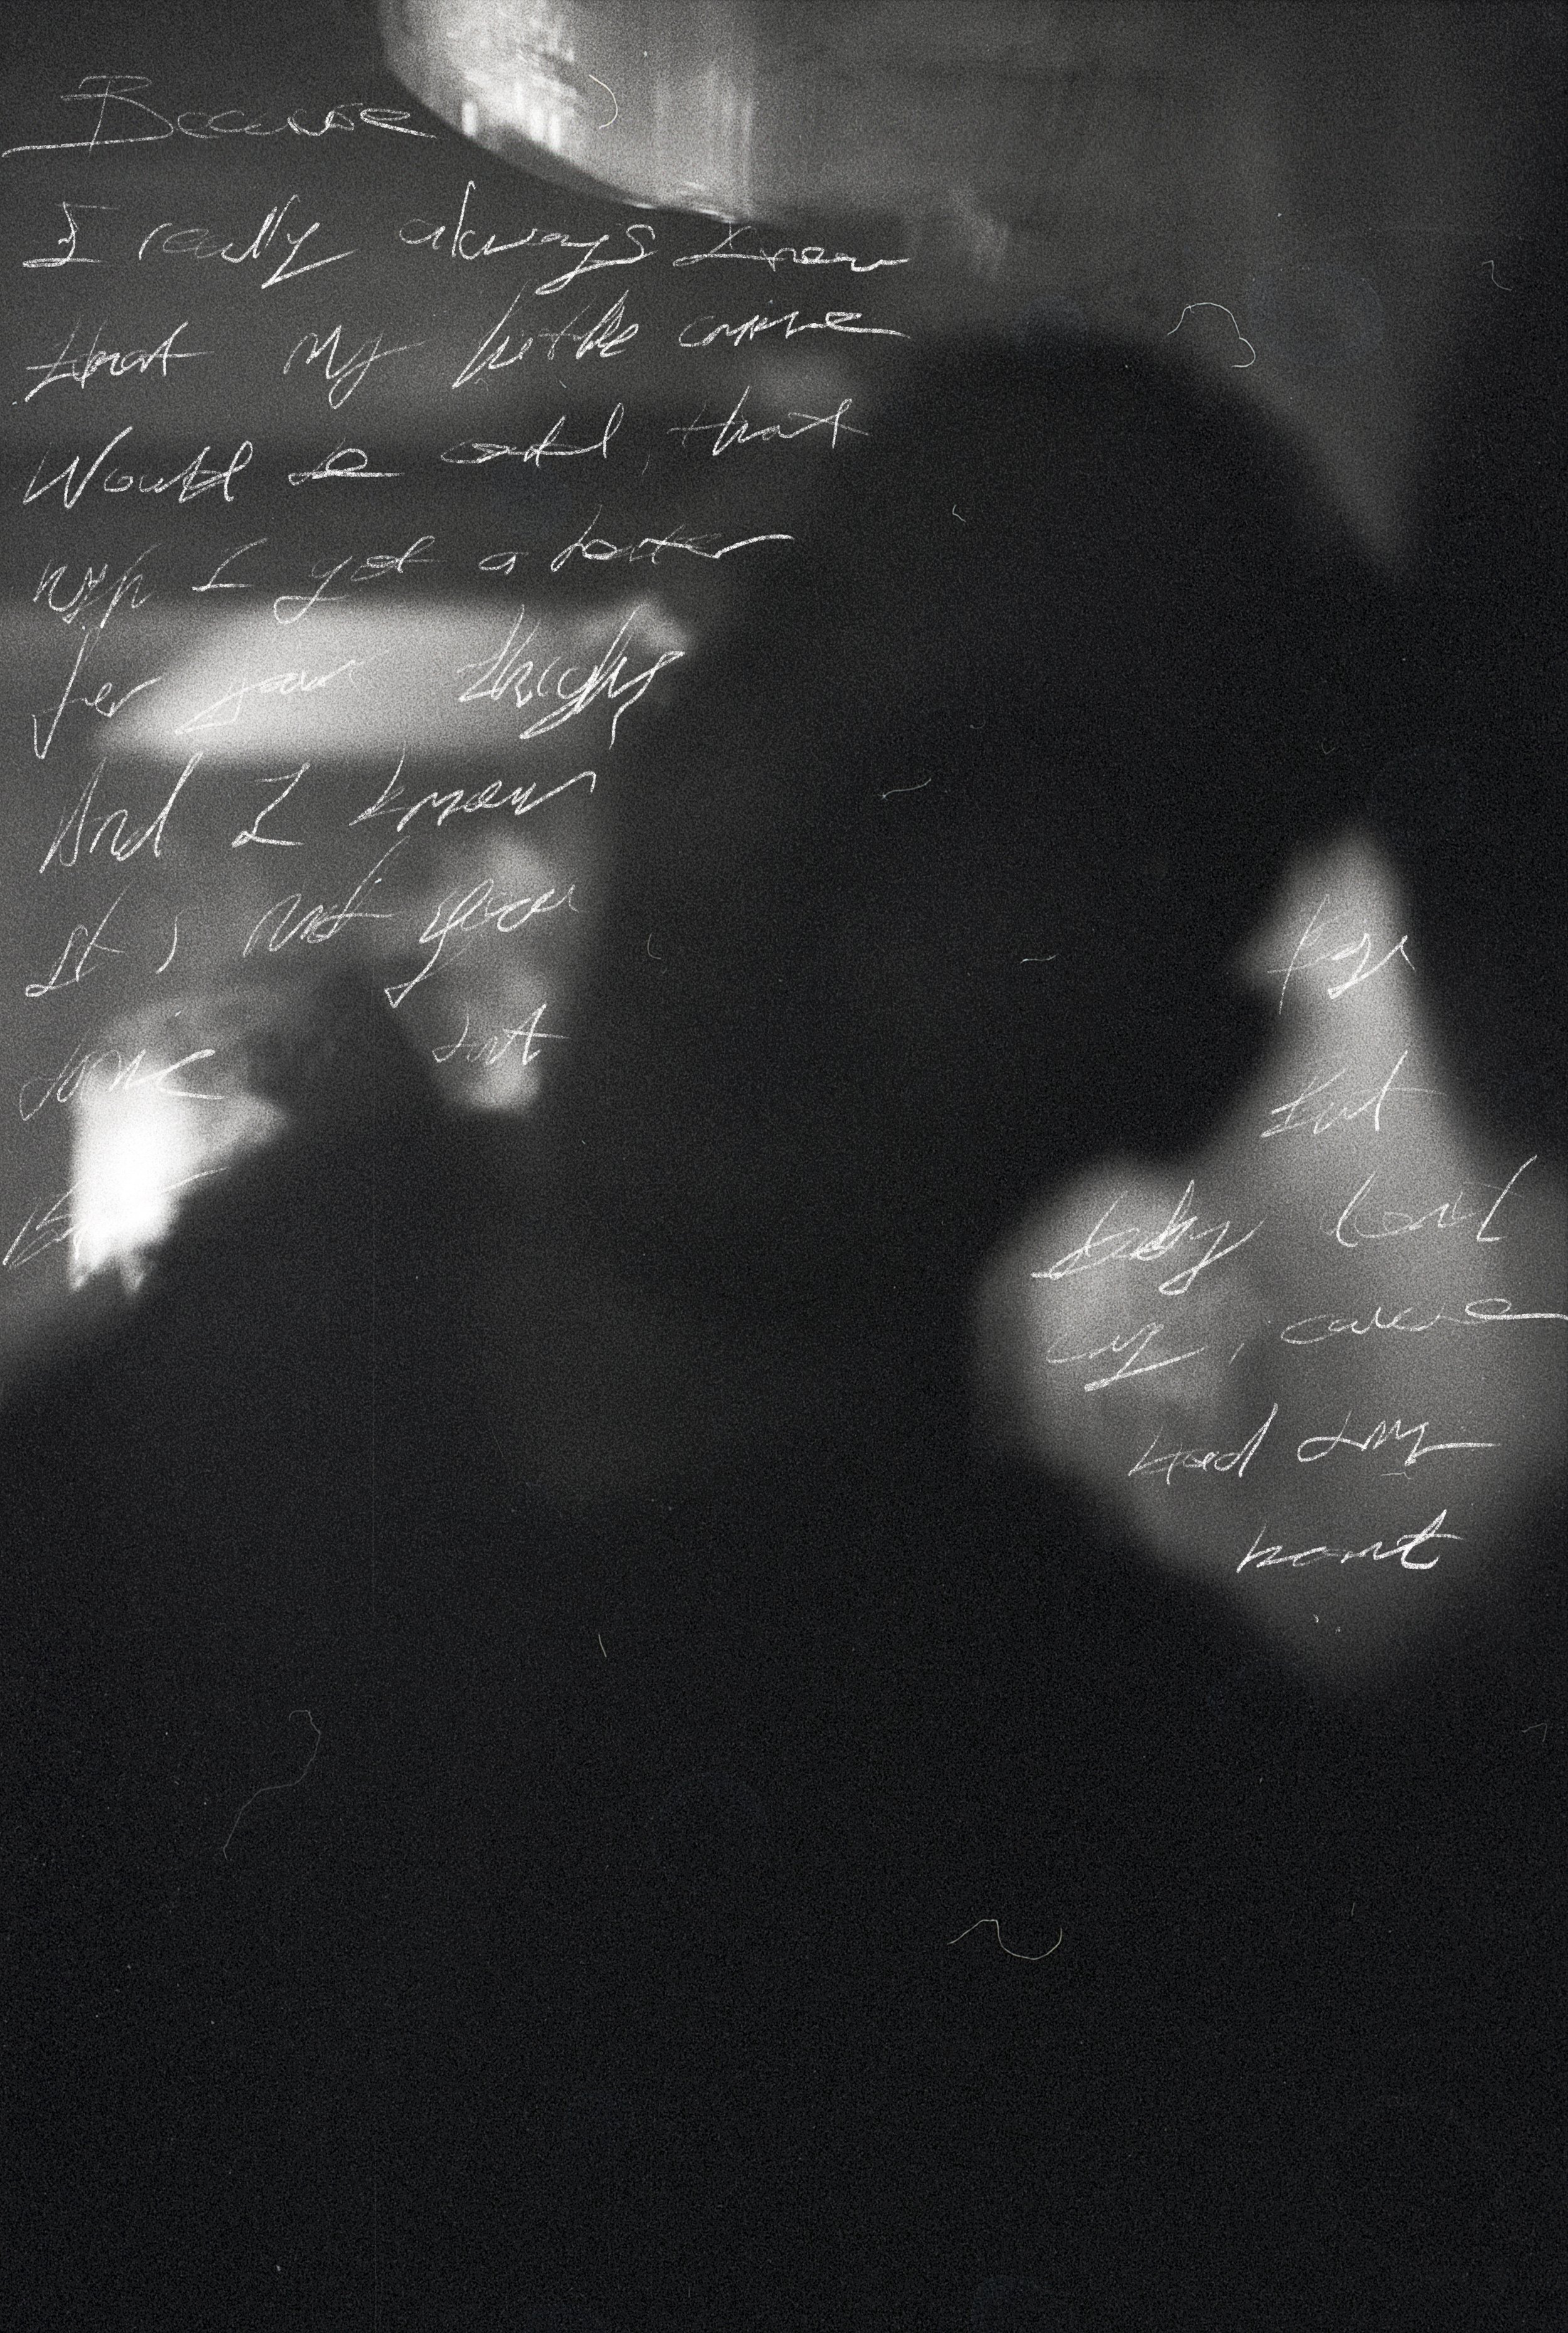 Because
I really always knew
that my little crime
Would be cold that
why I got a heater
for your thighs
And I know
it, not your
time but
for
but
baby don't
cry,
had my
heart